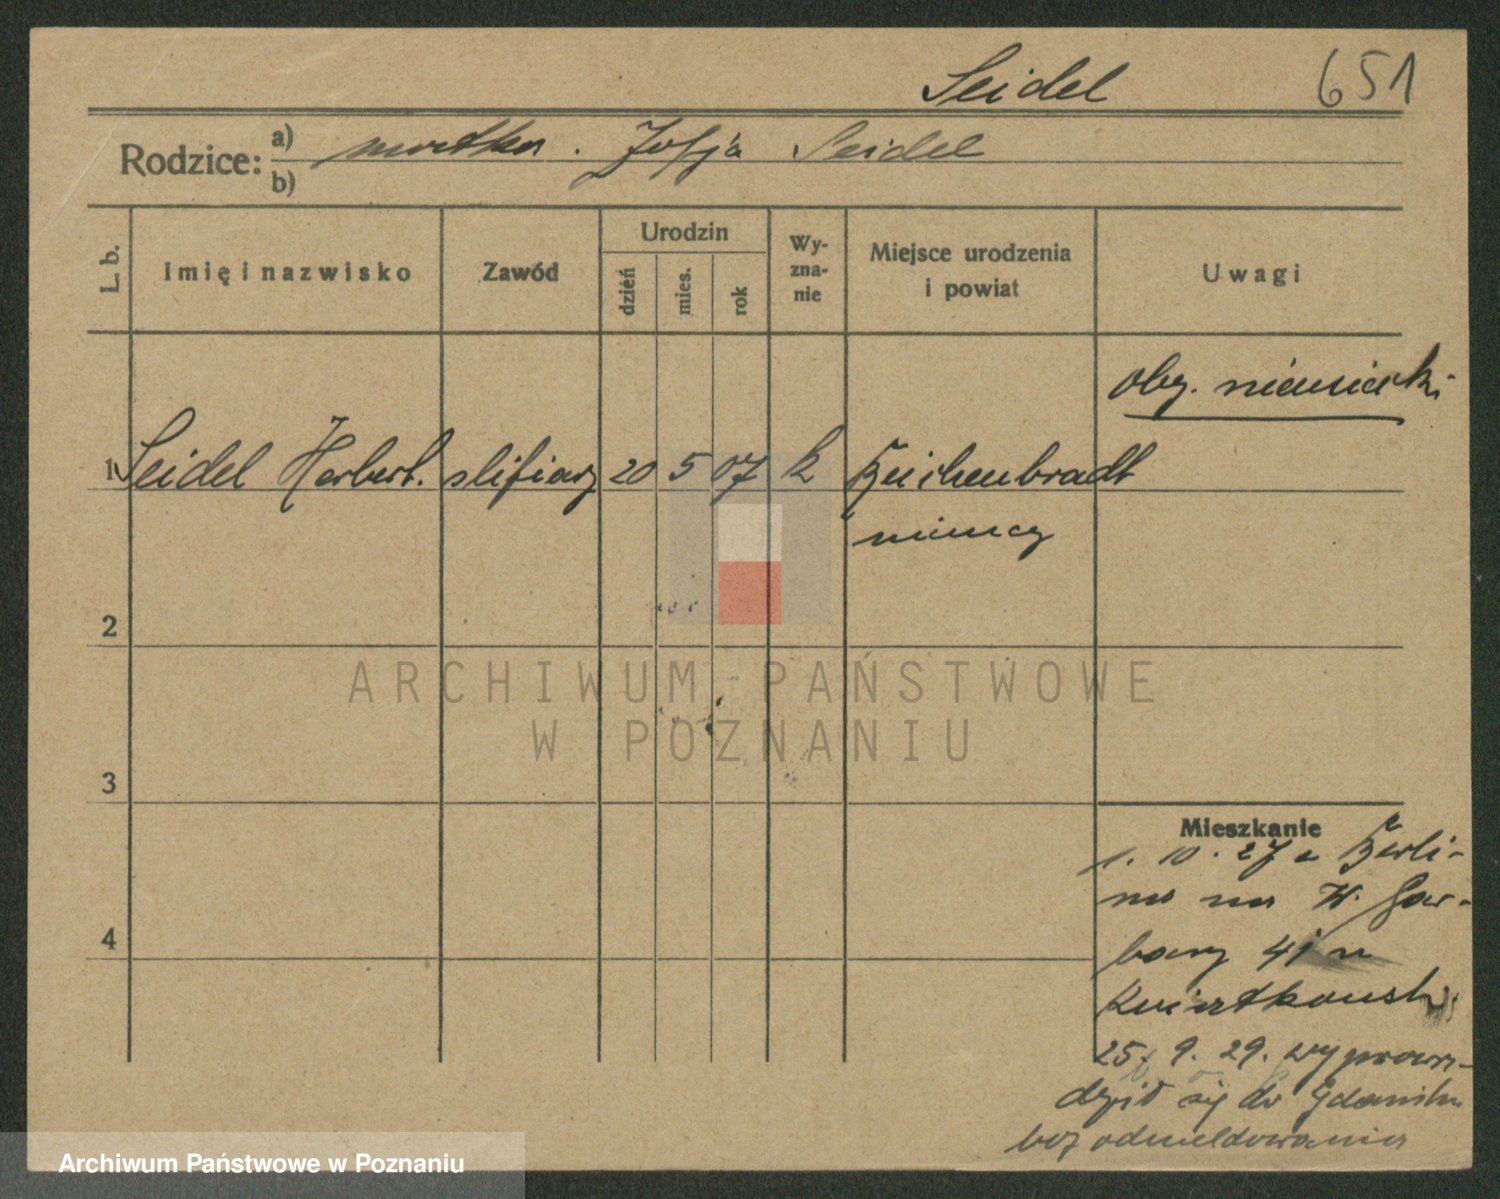 Seidel 651
Rodzice: a) matka. Zofja Seidel
b)
L. b. Imię i nazwisko Zawód Urodzin dzień mies. rok Wyznanie Miejsce urodzenia i powiat Uwagi
oby. niemiecki
1 Seidel Herbert. slifiarz 20 5 07 k Reichenbradt
niemcy
2
3
4
Mieszkanie
1. 10. 27 z Berli-
na na W. Gar-
bary 41 u
Kwiatkowski
25. 9. 29. wyprowa-
dził się do Gdańska
bez odmeldowania
ARCHIWUM PAŃSTWOWE
W POZNANIU
Archiwum Państwowe w Poznaniu